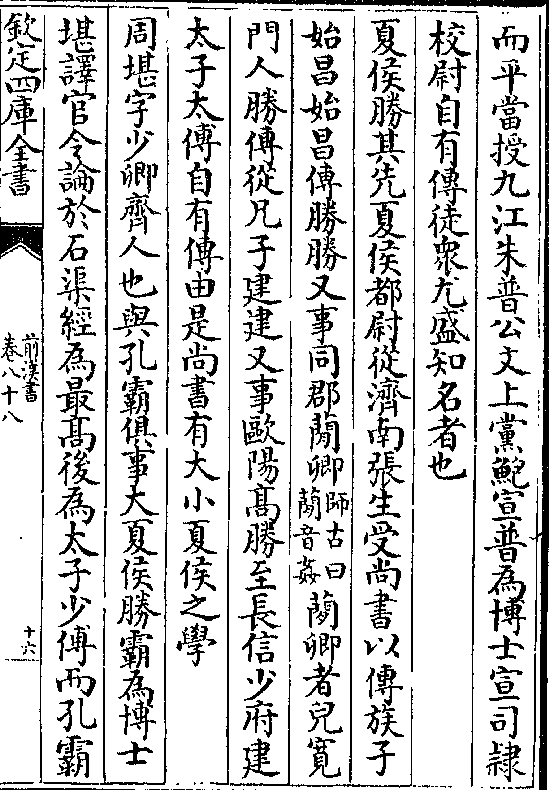 而平當授九江朱普公文上黨鮑宣普為博士宣司隷
校尉自有傳徒衆尤盛知名者也
夏侯勝其先夏侯都尉從濟南張生受尚書以傳族子
始昌始昌傳勝勝又事同郡蕑卿師古曰蕑音姦蕑卿者兒寛
門人勝傳從兄子建建又事歐陽髙勝至長信少府建
太子太傅自有傳由是尚書有大小夏侯之學
周堪字少卿齊人也與孔霸俱事大夏侯勝霸為博士
堪譯官令論於石渠經為最髙後為太子少傅而孔霸
欽定四庫全書
前漢書
卷八十八
十六